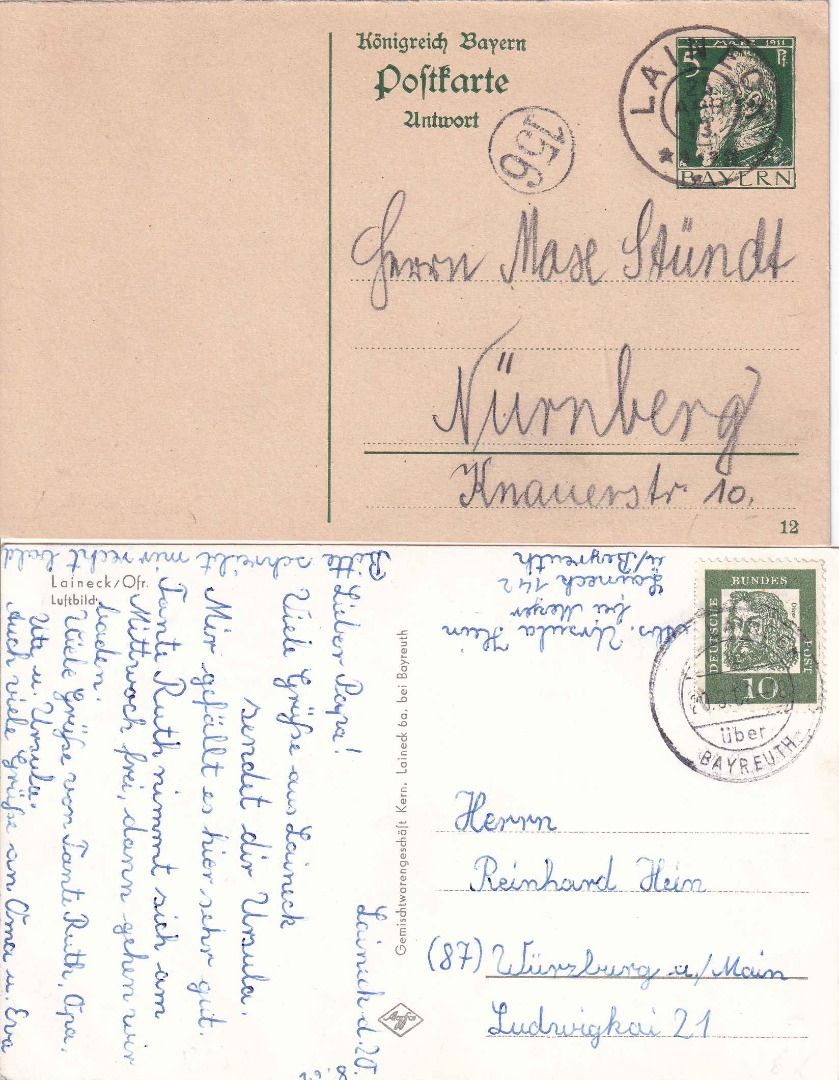 Königreich Bayern
Postkarte
Antwort
156
5 MÄRZ 1911 Pf
BAYERN
Herrn Max Stündt
Nürnberg
Knauerstr 10.
12
Laineck/Ofr.
Luftbild
Laineck d. 20.
Lieber Papa!
Viele Grüße aus Laineck
sendet dir Ursula.
Mir gefällt es hier sehr gut.
Tante Ruth nimmt sich am
Mittwoch frei, dann gehen wir
baden.
Viele Grüße von Tante Ruth, Opa,
Ute u. Ursula.
Auch viele Grüße an Oma u. Eva
Bitte schreibt mir recht bald
Gemischtwarengeschäft Kern, Laineck 6a, bei Bayreuth
Abs. Ursula Hein
bei Meyer
Laineck 142
ü/Bayreuth
DEUTSCHE BUNDES POST
10
über
BAYREUTH
Herrn
Reinhard Hein
(87) Würzburg a/Main
Ludwigkai 21
Agfa